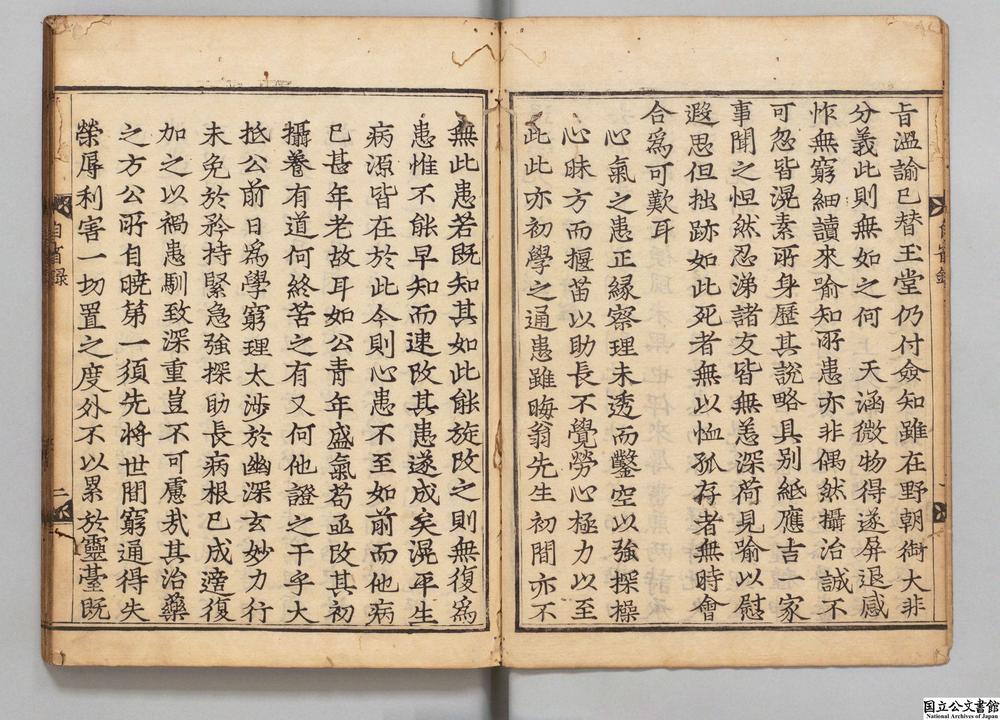 旨溫諭已替玉堂仍付僉知雖在野朝銜大非
分義此則無如之何 天涵微物得遂屏退感
怍無窮細讀來喻知所患亦非偶然攝治誠不
可忽皆滉素所身歷其說略具别紙應吉一家
事聞之怛然忍涕諸友皆無恙深荷見喻以慰
遐思但拙跡如此死者無以恤孤存者無時會
合爲可歎耳
心氣之患正緣察理未透而鑿空以強探操
心昧方而揠苗以助長不覺勞心極力以至
此此亦初學之通患雖晦翁先生初間亦不
無此患若旣知其如此能旋改之則無復爲
患惟不能早知而速改其患遂成矣滉平生
病源皆在於此今則心患不至如前而他病
已甚年老故耳如公靑年盛氣苟亟改其初
攝養有道何終苦之有又何他證之干乎大
抵公前日爲學窮理太涉於幽深玄妙力行
未免於矜持緊急強探助長病根已成適復
加之以禍患馴致深重豈不可慮哉其治藥
之方公所自曉第一須先將世間窮通得失
榮辱利害一切置之度外不以累於靈臺旣
自省錄
二
自省錄
國立公文書館
National Archives of Japan